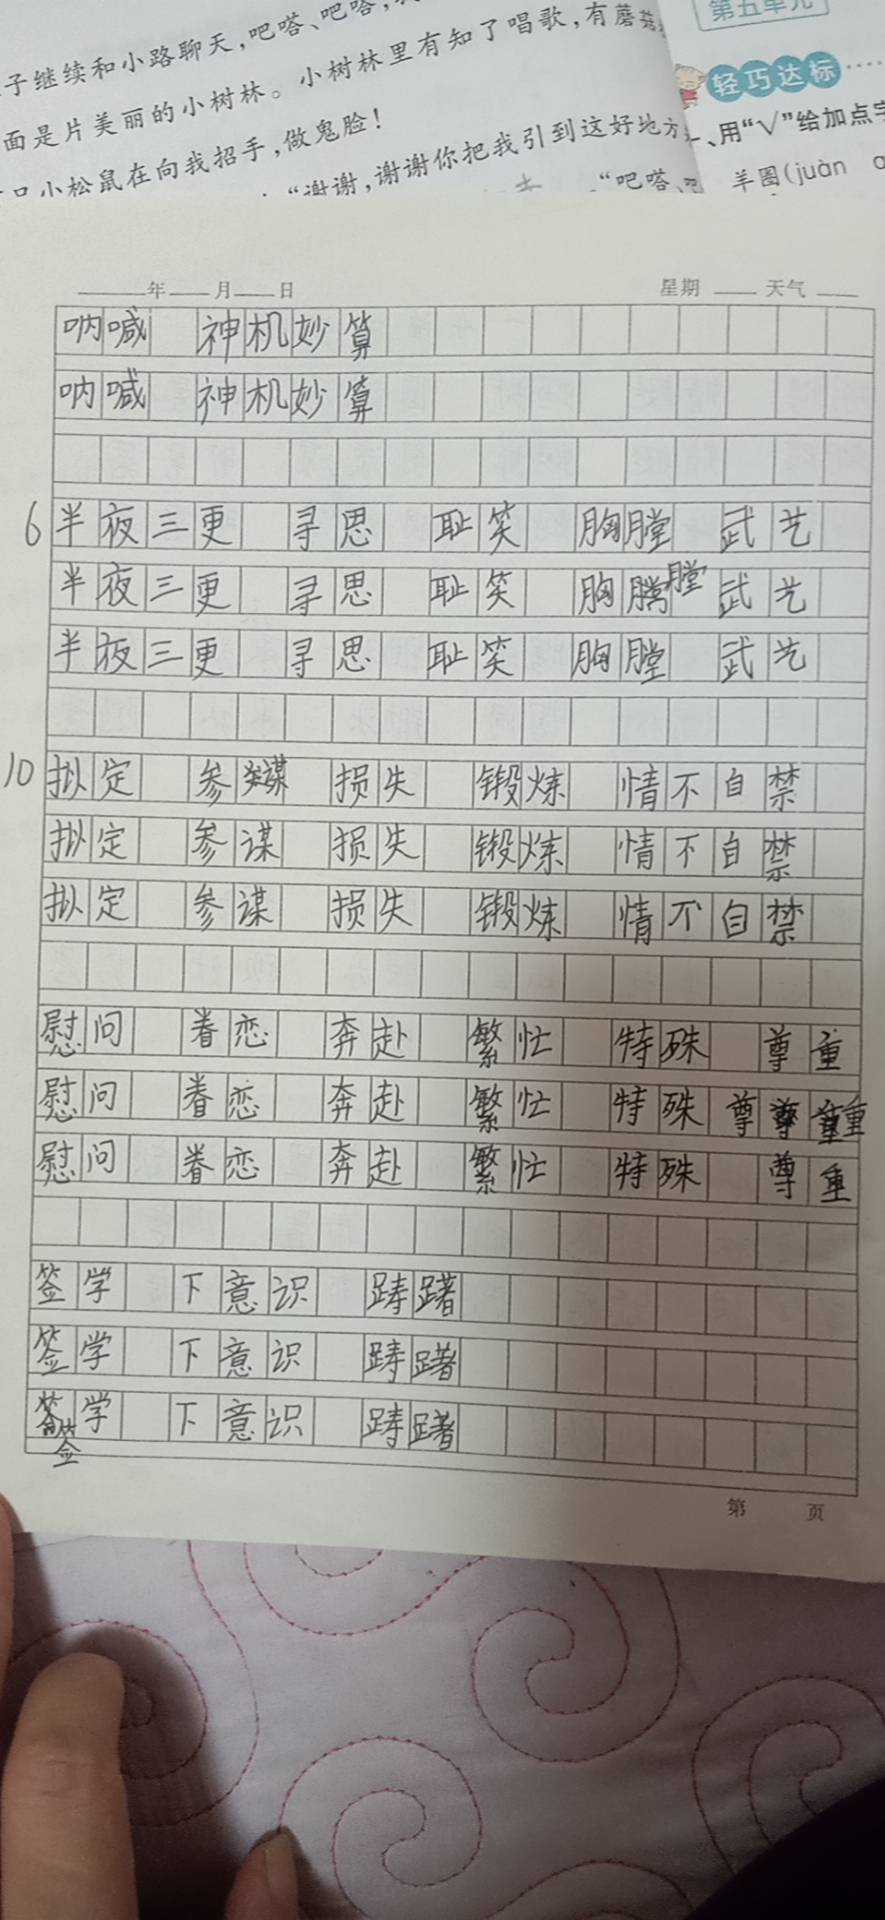 子继续和小路聊天,吧嗒、吧嗒,
面是片美丽的小树林。小树林里有知了唱歌,有蘑菇
只小松鼠在向我招手,做鬼脸!
“谢谢,谢谢你把我引到这好地方
“吧嗒、吧
第五单元
轻巧达标
一、用“√”给加点字
羊圈(juàn
年 月 日 星期 天气
呐喊 神机妙算
呐喊 神机妙算
6 半夜三更 寻思 耻笑 胸膛 武艺
半夜三更 寻思 耻笑 胸膛 武艺
半夜三更 寻思 耻笑 胸膛 武艺
10 拟定 参谋 损失 锻炼 情不自禁
拟定 参谋 损失 锻炼 情不自禁
拟定 参谋 损失 锻炼 情不自禁
慰问 眷恋 奔赴 繁忙 特殊 尊重
慰问 眷恋 奔赴 繁忙 特殊 尊重
慰问 眷恋 奔赴 繁忙 特殊 尊重
签学 下意识 踌躇
签学 下意识 踌躇
签学 下意识 踌躇
第 页